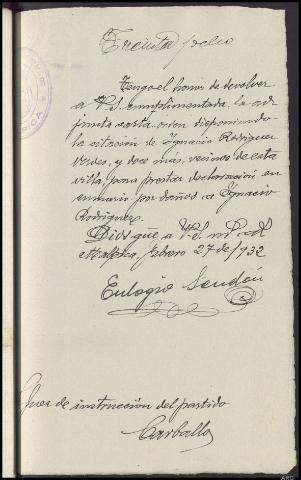 Treinta y ocho
Tengo el honor de devolver
a V.S. cumplimentada, la ad-
junta carta-orden disponiendo
la citación de Ignacio Rodriguez
Verdes, y doce más, vecinos de esta
villa, para prestar declaración en
sumario por daños a Ignacio
Rodriguez.
Dios gue, a V.S. m
Malpica, febrero 27 de 1932
Eulogio Sendón
Juez de instrucción del partido
Carballo